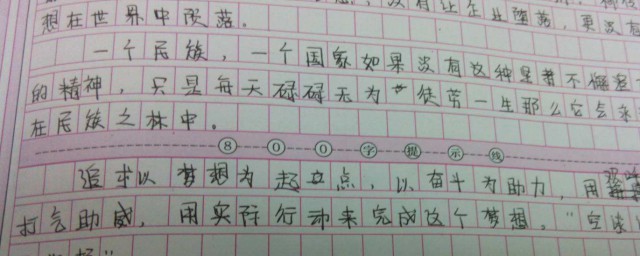 想在世界中陨落。
没有让企业陨落，更没有
一个民族，一个国家如果没有这种坚著不懈
的精神，只是每天碌碌无为，徒劳一生那么它会来
在民族之林中。
800字提示线
追求以梦想为起点，以奋斗为助力，用
打气助威，用实际行动来完成这个梦想。“空谈